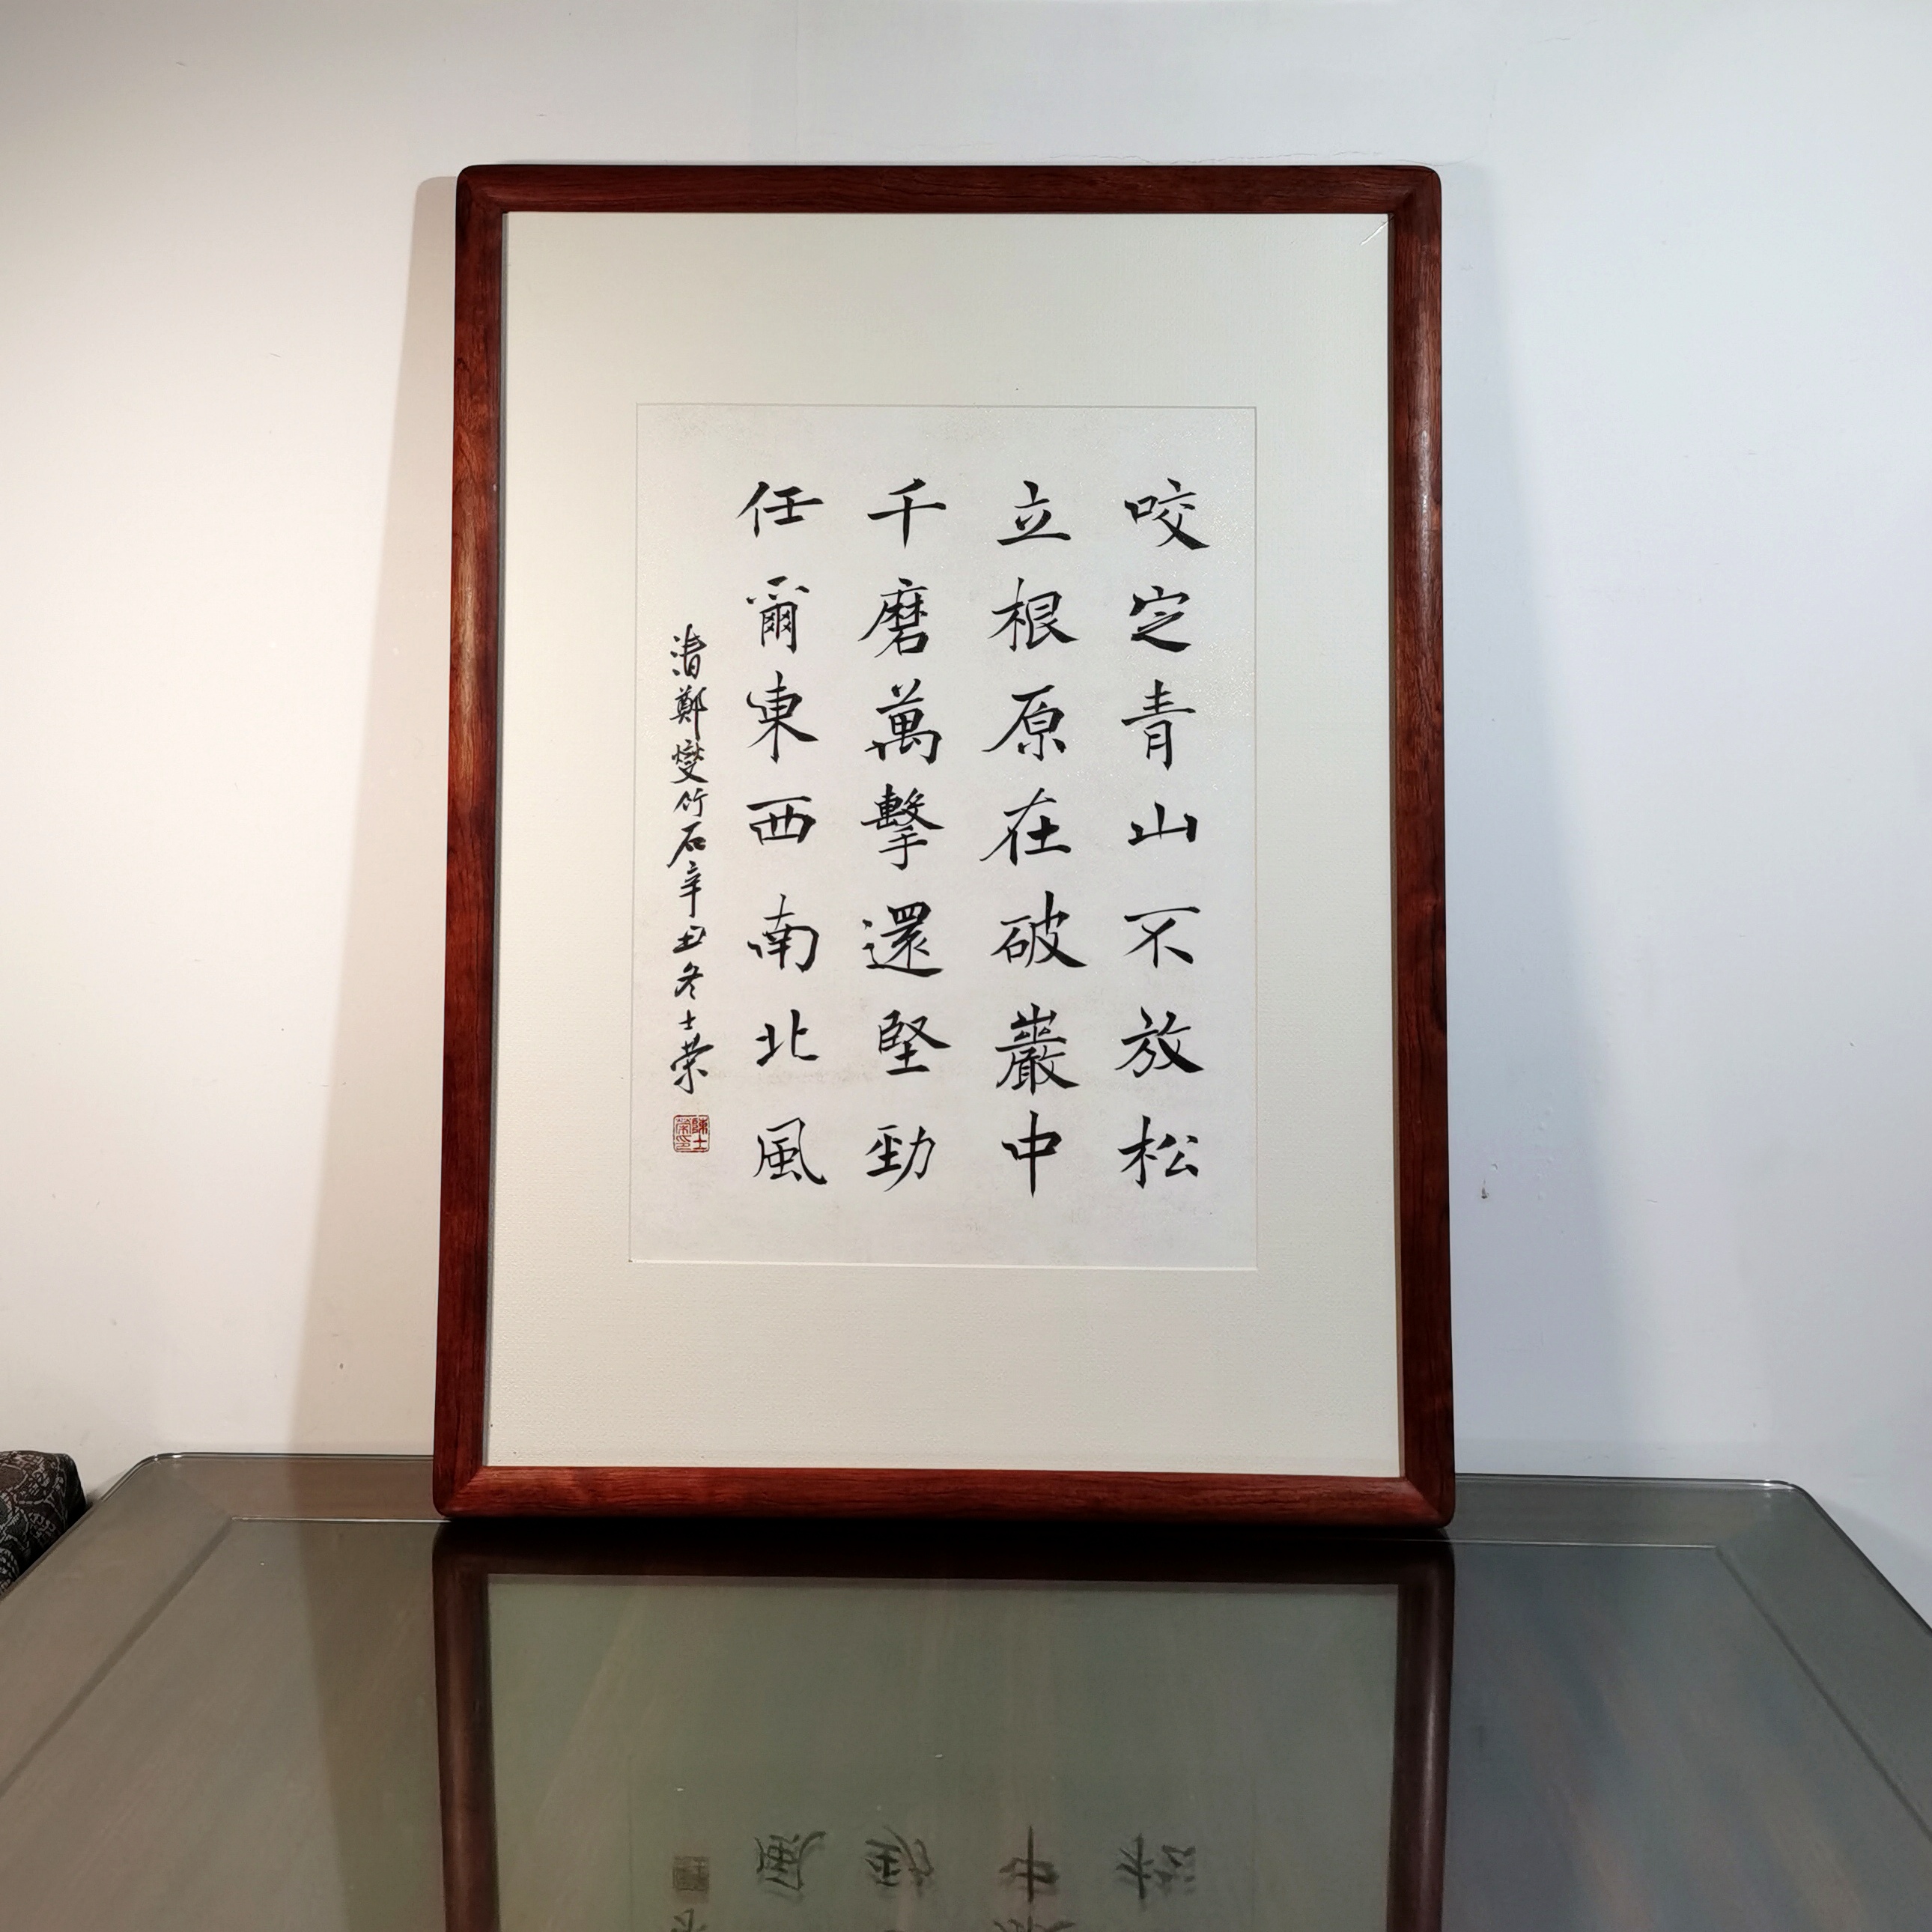 咬定青山不放松
立根原在破巖中
千磨萬擊還堅勁
任爾東西南北風
清鄭燮竹石辛丑冬士荣
陳士榮印